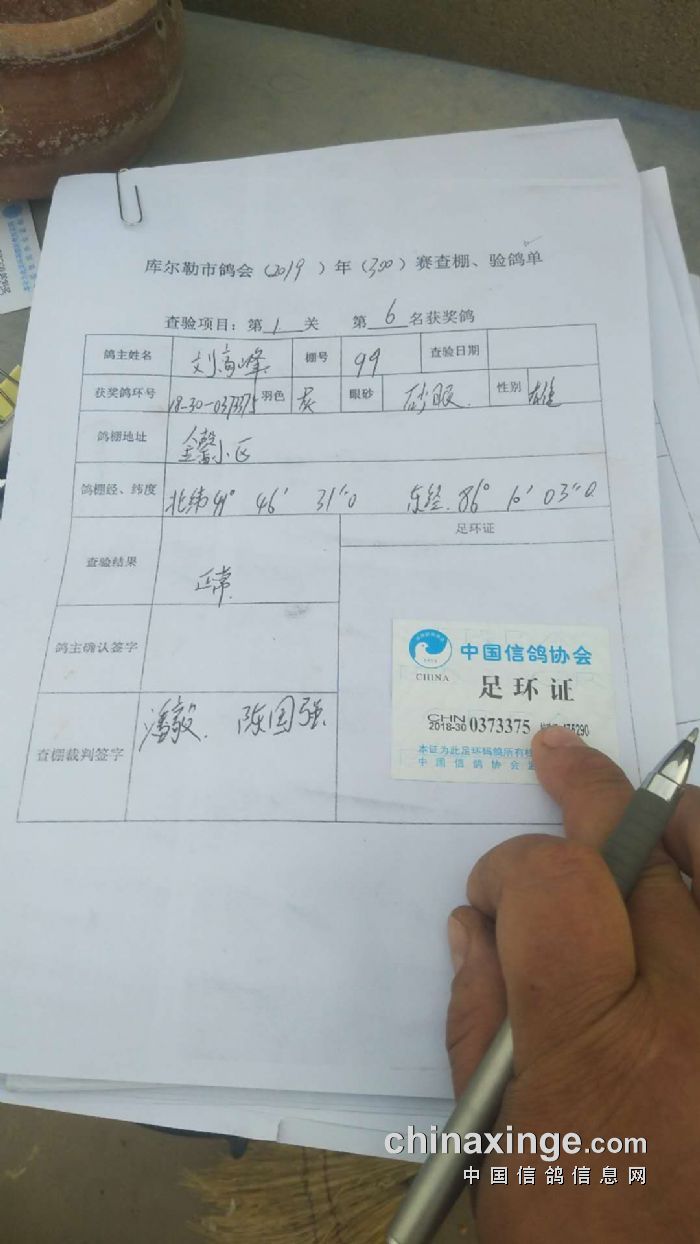 库尔勒市鸽会（2019）年（300）赛查棚、验鸽单
查验项目：第1关 第6名获奖鸽
鸽主姓名 刘高峰 棚号 99 查验日期
获奖鸽环号 18-30-0373375 羽色 灰 眼砂 砂眼 性别 雄
鸽棚地址 金馨小区
鸽棚经、纬度 北纬41° 46′ 31″0 东经 86° 10′ 03″0
足环证
查验结果 正常
鸽主确认签字
查棚裁判签字 潘毅 陈国强
中国信鸽协会
CHINA
足环证
CHN
2018-30 0373375
本证为此足环码鸽所有
中国信鸽协会
chinaxinge.com
中国信鸽信息网